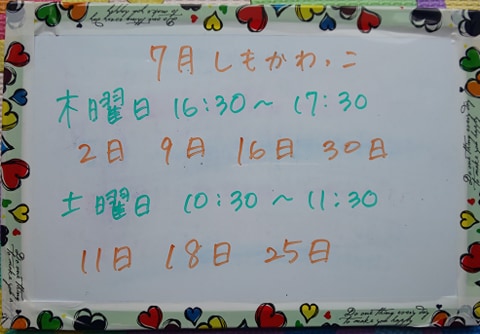 7月しもかわっこ
木曜日 16:30~ 17:30
2日 9日 16日 30日
土曜日 10:30~11:30
11日 18日 25日